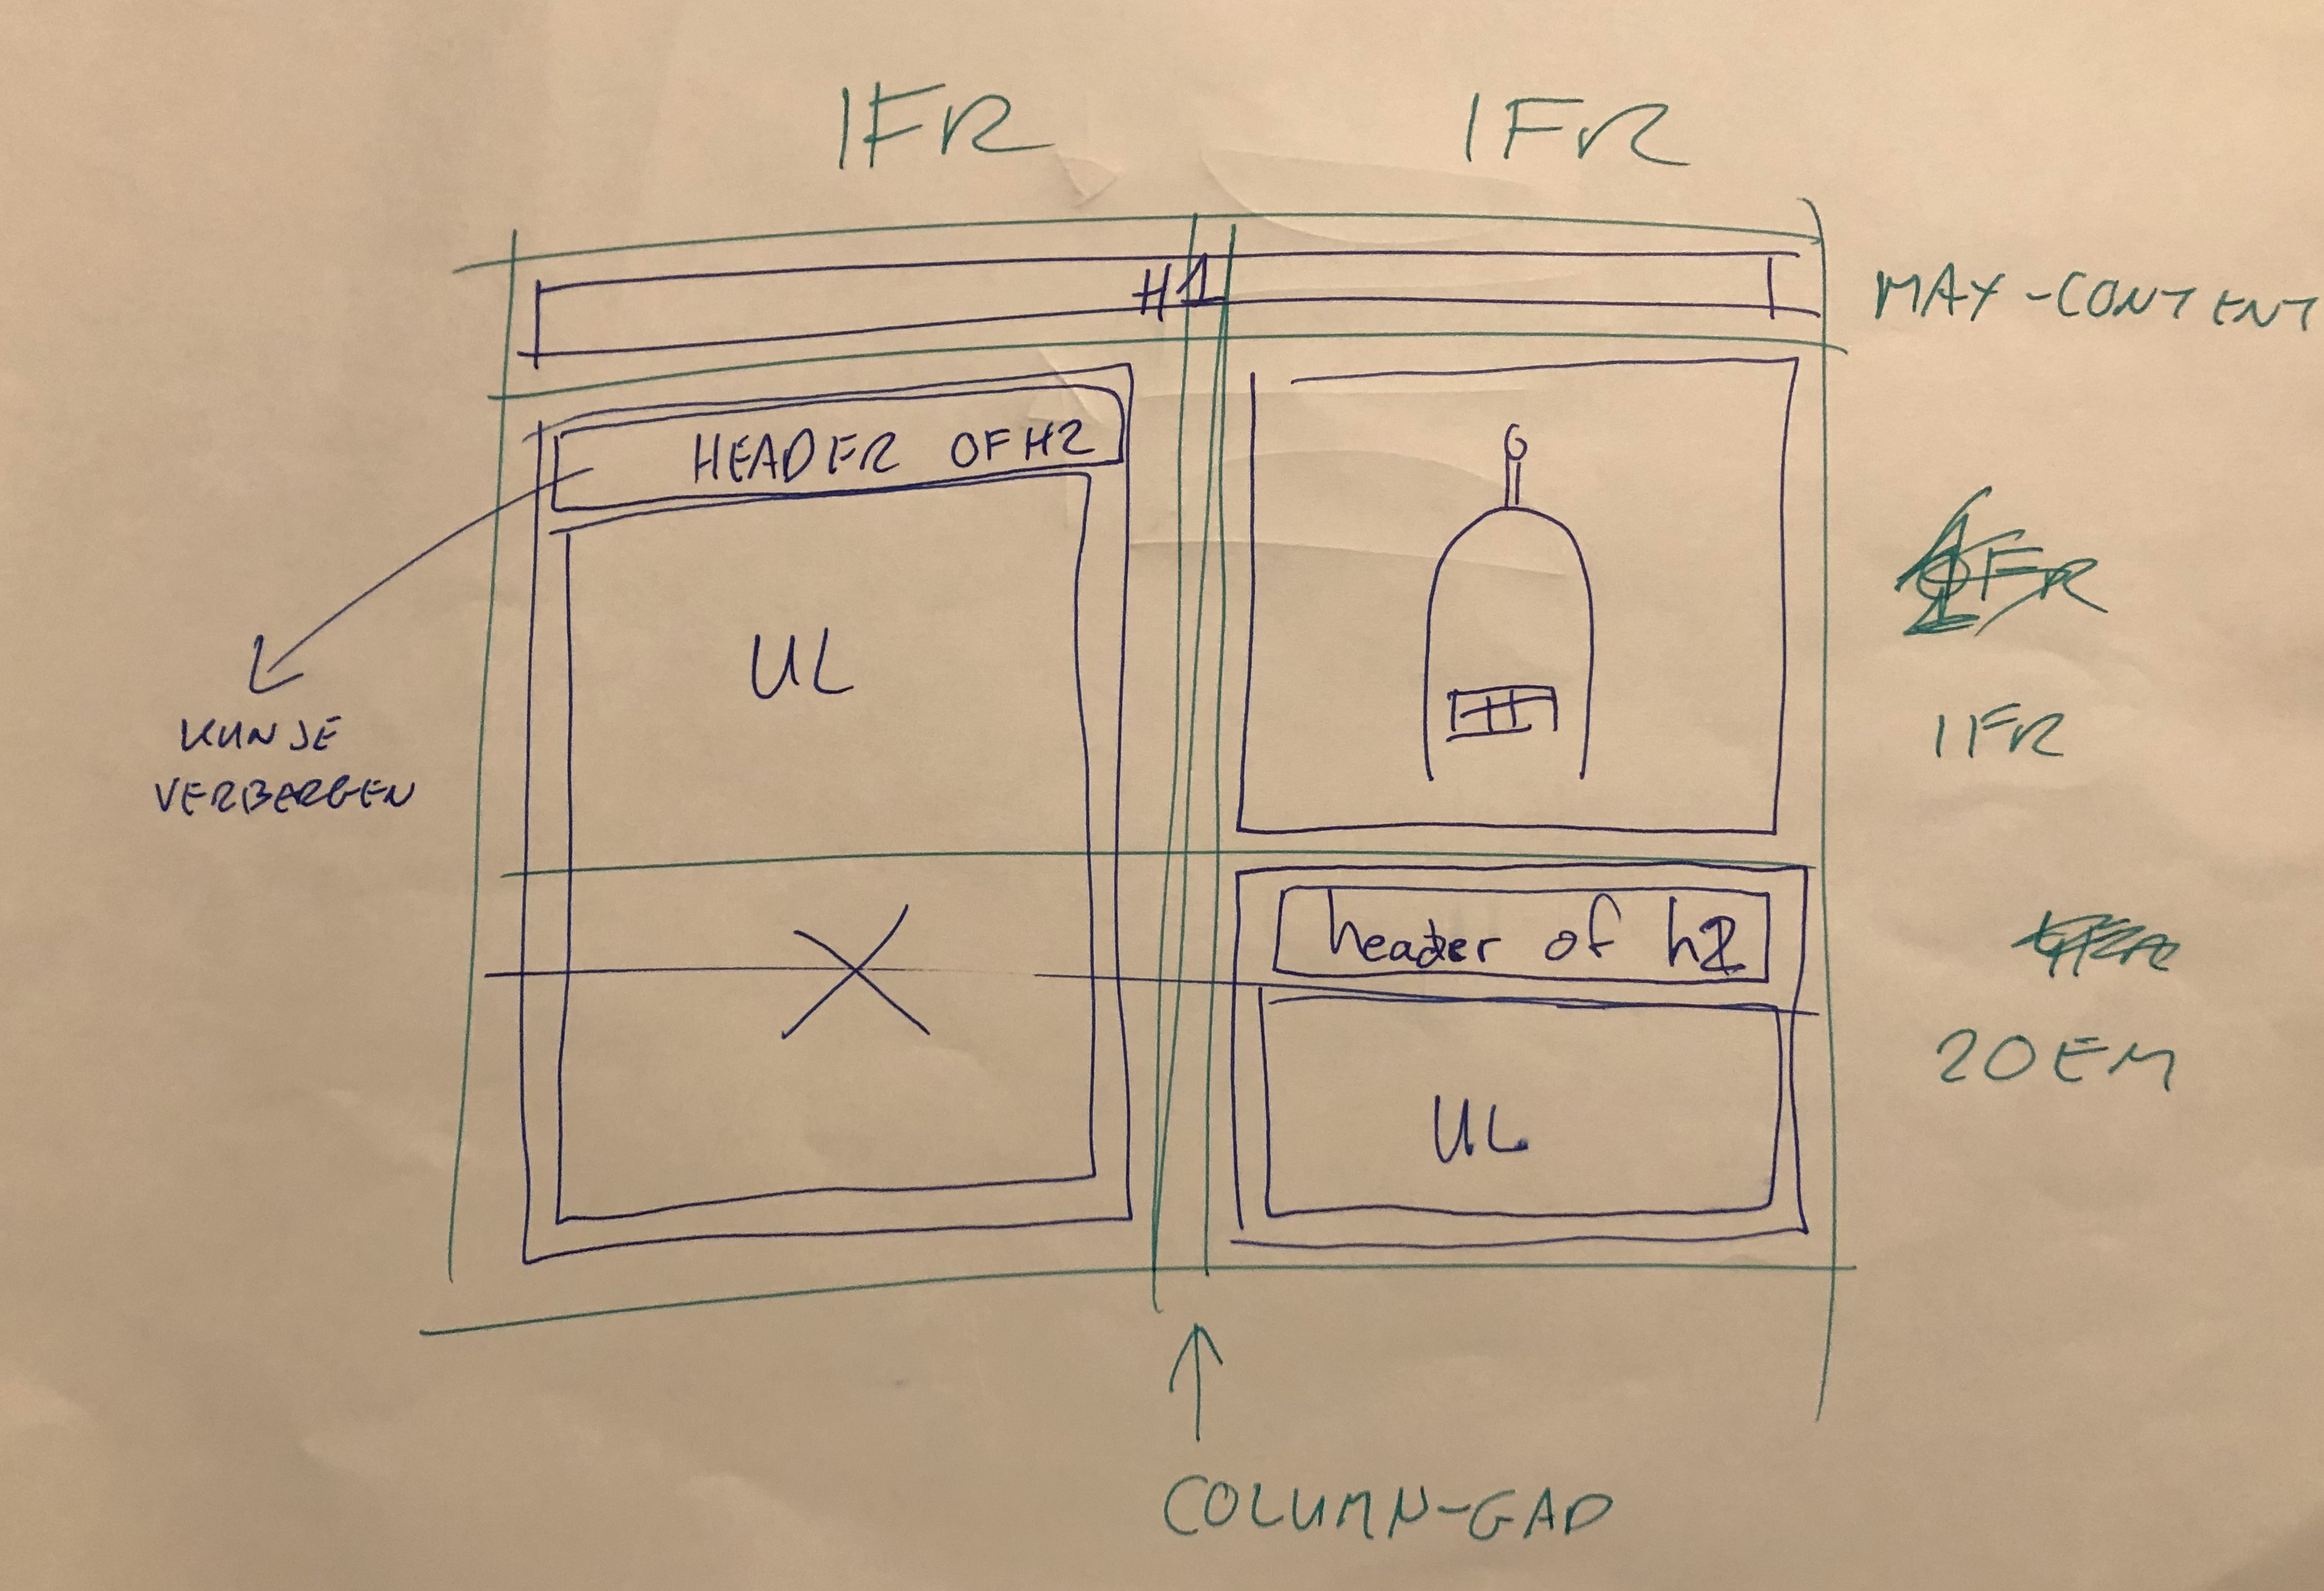 1FR
1FR
H1
MAX-CONTENT
HEADER OF H2
UL
KUN JE
VERBERGEN
1FR
1FR
header of h2
20EM
UL
COLUMN-GAP